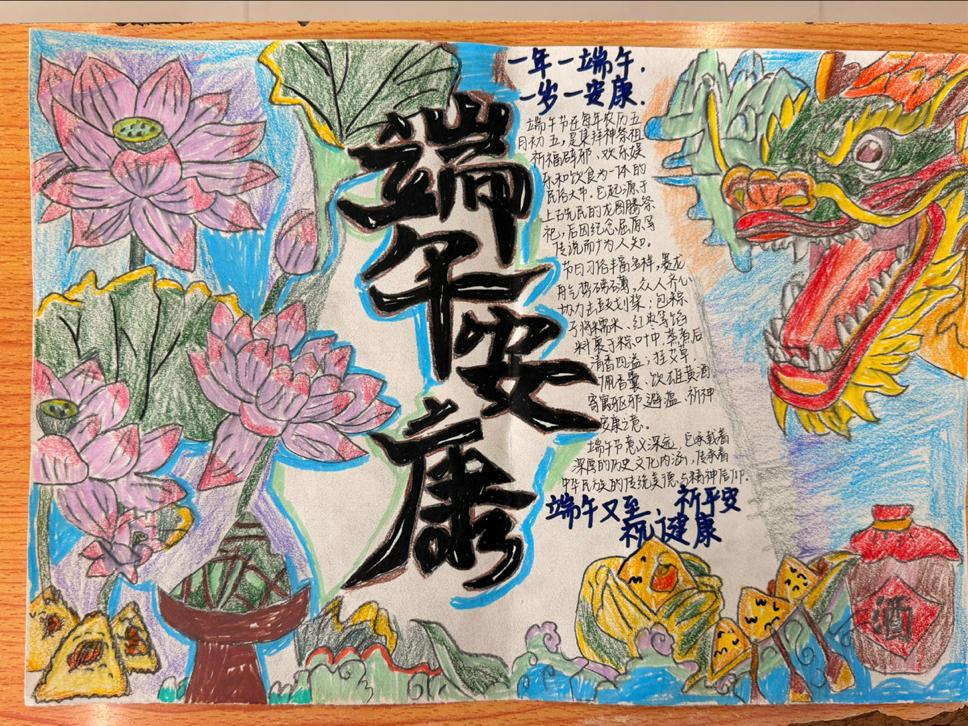 端午安康
一年一端午.
一岁一安康.
端午节在每年农历五
月初五,是集拜神祭祖
祈福辟邪、欢乐娱
乐和饮食为一体的
民俗大节。它起源于
上古先民的龙图腾祭
祀,后因纪念屈原等
传说而广为人知。
节日习俗丰富多样,赛龙
舟气势磅礴,众人齐心
协力击鼓划桨;包粽
子将糯米、红枣等馅
料裹于粽叶中,蒸煮后
清香四溢;挂艾草、
佩香囊、饮雄黄酒
寄寓驱邪避瘟、祈神
安康之意。
端午节意义深远,它承载着
深厚的历史文化内涵,传承着
中华民族的传统美德与精神信仰.
端午又至, 祈平安
祝健康
酒